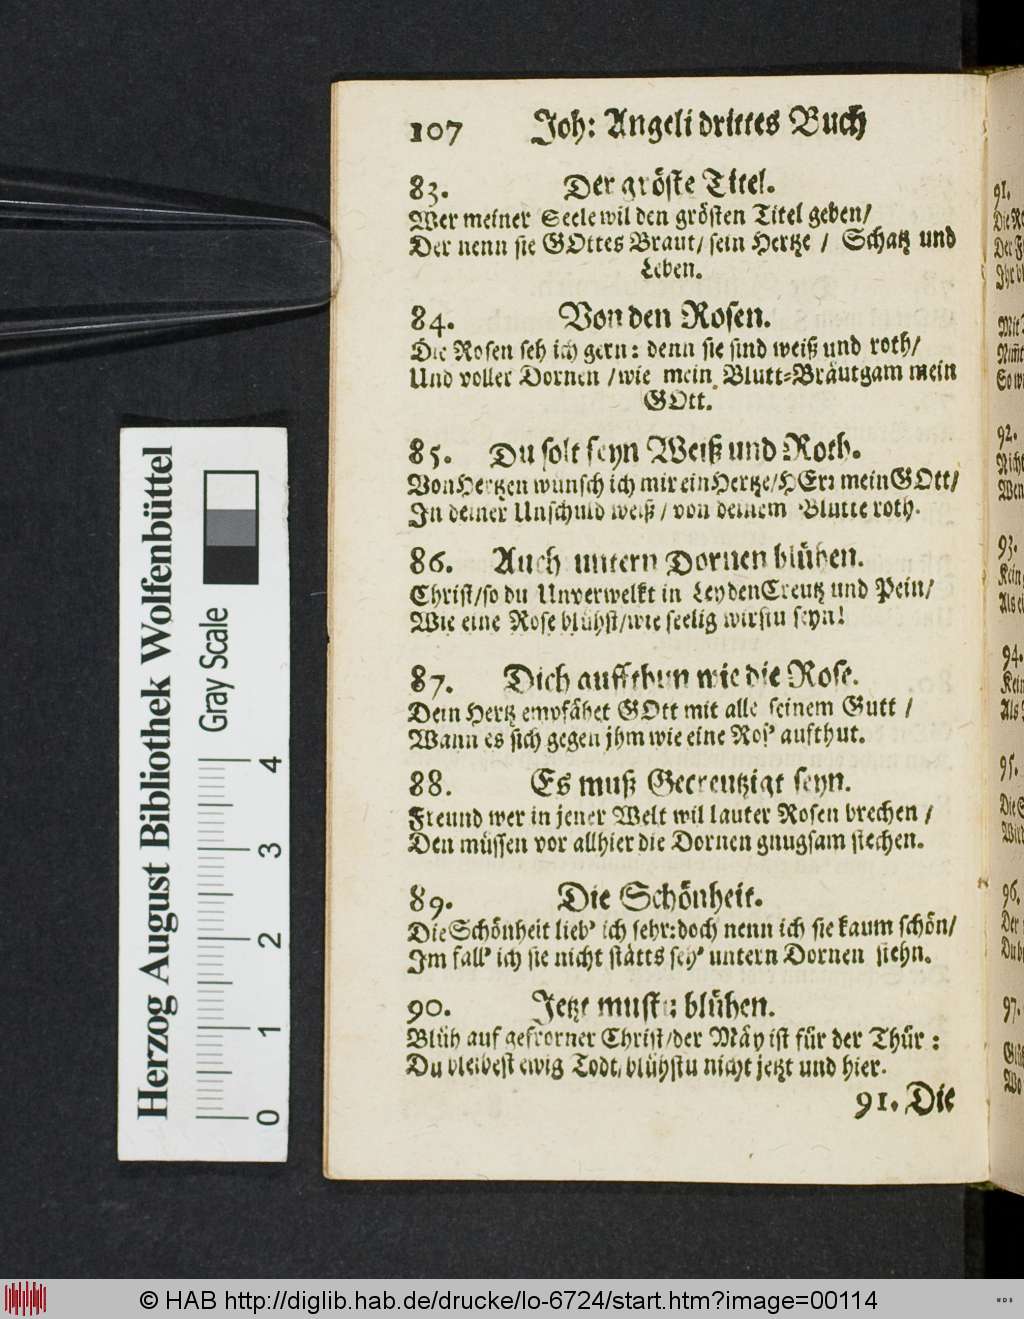 107 Joh: Angeli drittes Buch
83. Der gröste Titel.
Wer meiner Seele wil den grösten Titel geben/
Der nenn sie GOttes Braut/ sein Hertze / Schatz und
Leben.
84. Von den Rosen.
Die Rosen seh ich gern: denn sie sind weiß und roth/
Und voller Dornen /wie mein Blutt-Bräutgam mein
GOtt.
85. Du solt seyn Weiß und Roth.
Von Hertzen wünsch ich mir ein Hertze/HErr mein GOtt/
In deiner Unschuld weiß / von deinem Blutte roth.
86. Auch untern Dornen blühen.
Christ/so du Unverwelkt in Leyden Creutz und Pein/
Wie eine Rose blühst/wie seelig wirstu seyn!
87. Dich auffthun wie die Rose.
Dein Hertz empfähet GOtt mit alle seinem Gutt /
Wann es sich gegen jhm wie eine Ros' aufthut.
88. Es muß Gecreutzigt seyn.
Freund wer in jener Welt wil lauter Rosen brechen /
Den müssen vor allhier die Dornen gnugsam stechen.
89. Die Schönheit.
Die Schönheit lieb' ich sehr: doch nenn ich sie kaum schön/
Im fall' ich sie nicht stätts seh' untern Dornen stehn.
90. Jetzt mustu blühen.
Blüh auf gefrorner Christ/der Mäy ist für der Thür :
Du bleibest ewig Todt/blühstu nicht jetzt und hier.
91. Die
91.
92.
93.
94.
95.
96.
97.
Herzog August Bibliothek Wolfenbüttel
Gray Scale
0 1 2 3 4
© HAB http://diglib.hab.de/drucke/lo-6724/start.htm?image=00114